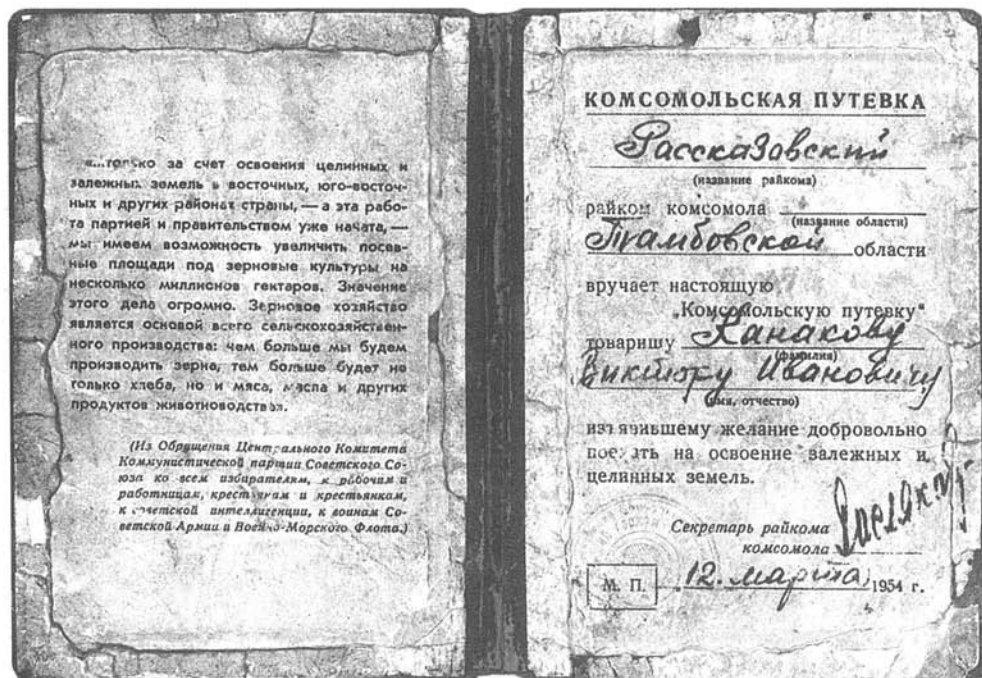 «...только за счет освоения целинных и
залежных земель в восточных, юго-восточ-
ных и других районах страны, — а эта рабо-
та партией и правительством уже начата, —
мы имеем возможность увеличить посев-
ные площади под зерновые культуры на
несколько миллионов гектаров. Значение
этого дела огромно. Зерновое хозяйство
является основой всего сельскохозяйствен-
ного производства: чем больше мы будем
производить зерна, тем больше будет не
только хлеба, но и мяса, масла и других
продуктов животноводства».
(Из Обращения Центрального Комитета
Коммунистической партии Советского Со-
юза ко всем избирателям, к рабочим и
работницам, крестьянам и крестьянкам,
к советской интеллигенции, к воинам Со-
ветской Армии и Военно-Морского Флота.)
КОМСОМОЛЬСКАЯ ПУТЕВКА
Рассказовский
(название райкома)
райком комсомола
(название области)
Тамбовской области
вручает настоящую
„Комсомольскую путевку"
товарищу Канакову
(фамилия)
Виктору Ивановичу
(имя, отчество)
изъявившему желание добровольно
поехать на освоение залежных и
целинных земель.
Секретарь райкома
комсомола
М. П. 12. марта 1954 г.